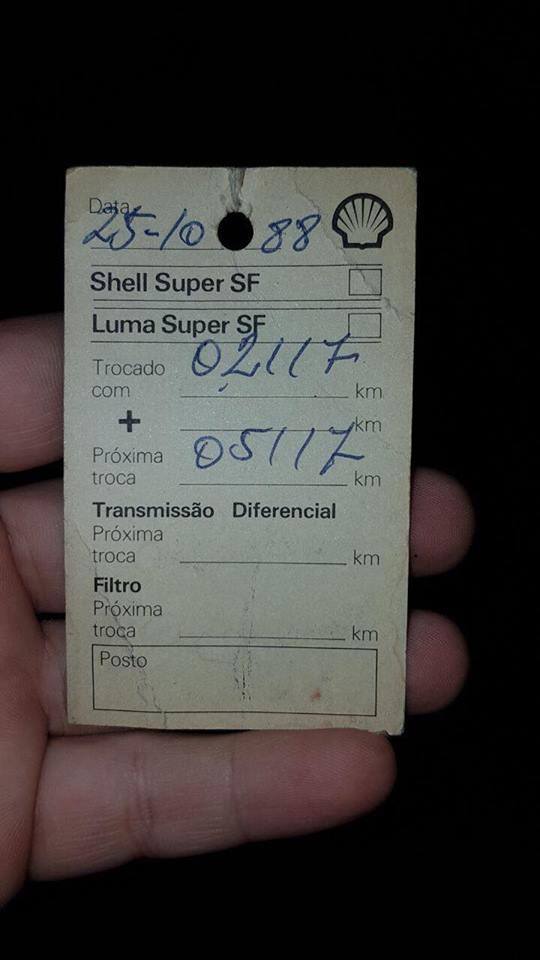 Data
25-10 88
Shell Super SF
Luma Super SF
Trocado
com 02117 km
+ km
Próxima
troca 05117 km
Transmissão Diferencial
Próxima
troca km
Filtro
Próxima
troca km
Posto